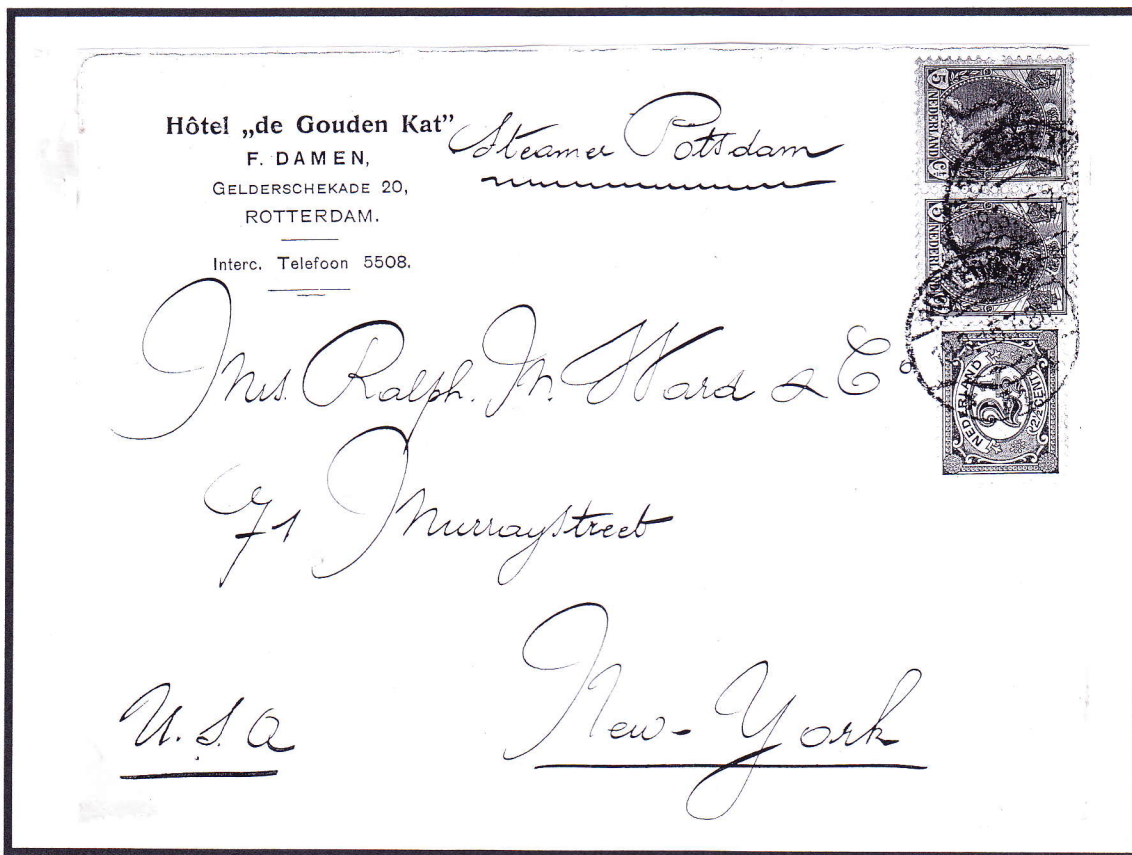 Hôtel „de Gouden Kat"
F. DAMEN,
GELDERSCHEKADE 20,
ROTTERDAM.
Interc. Telefoon 5508.
Steamer Potsdam
5 NEDERLAND Ct
5 NEDERLAND Ct
NEDERLAND
2½
2½ CENT
Mrs. Ralph. M. Ward & Co
71 Murraystreet
New-York
U.S.A